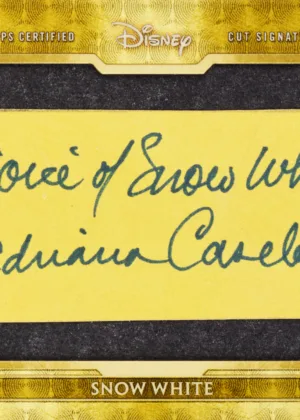 PS CERTIFIED Disney CUT SIGNAT
oice of Snow Wh
driana Casel
SNOW WHITE